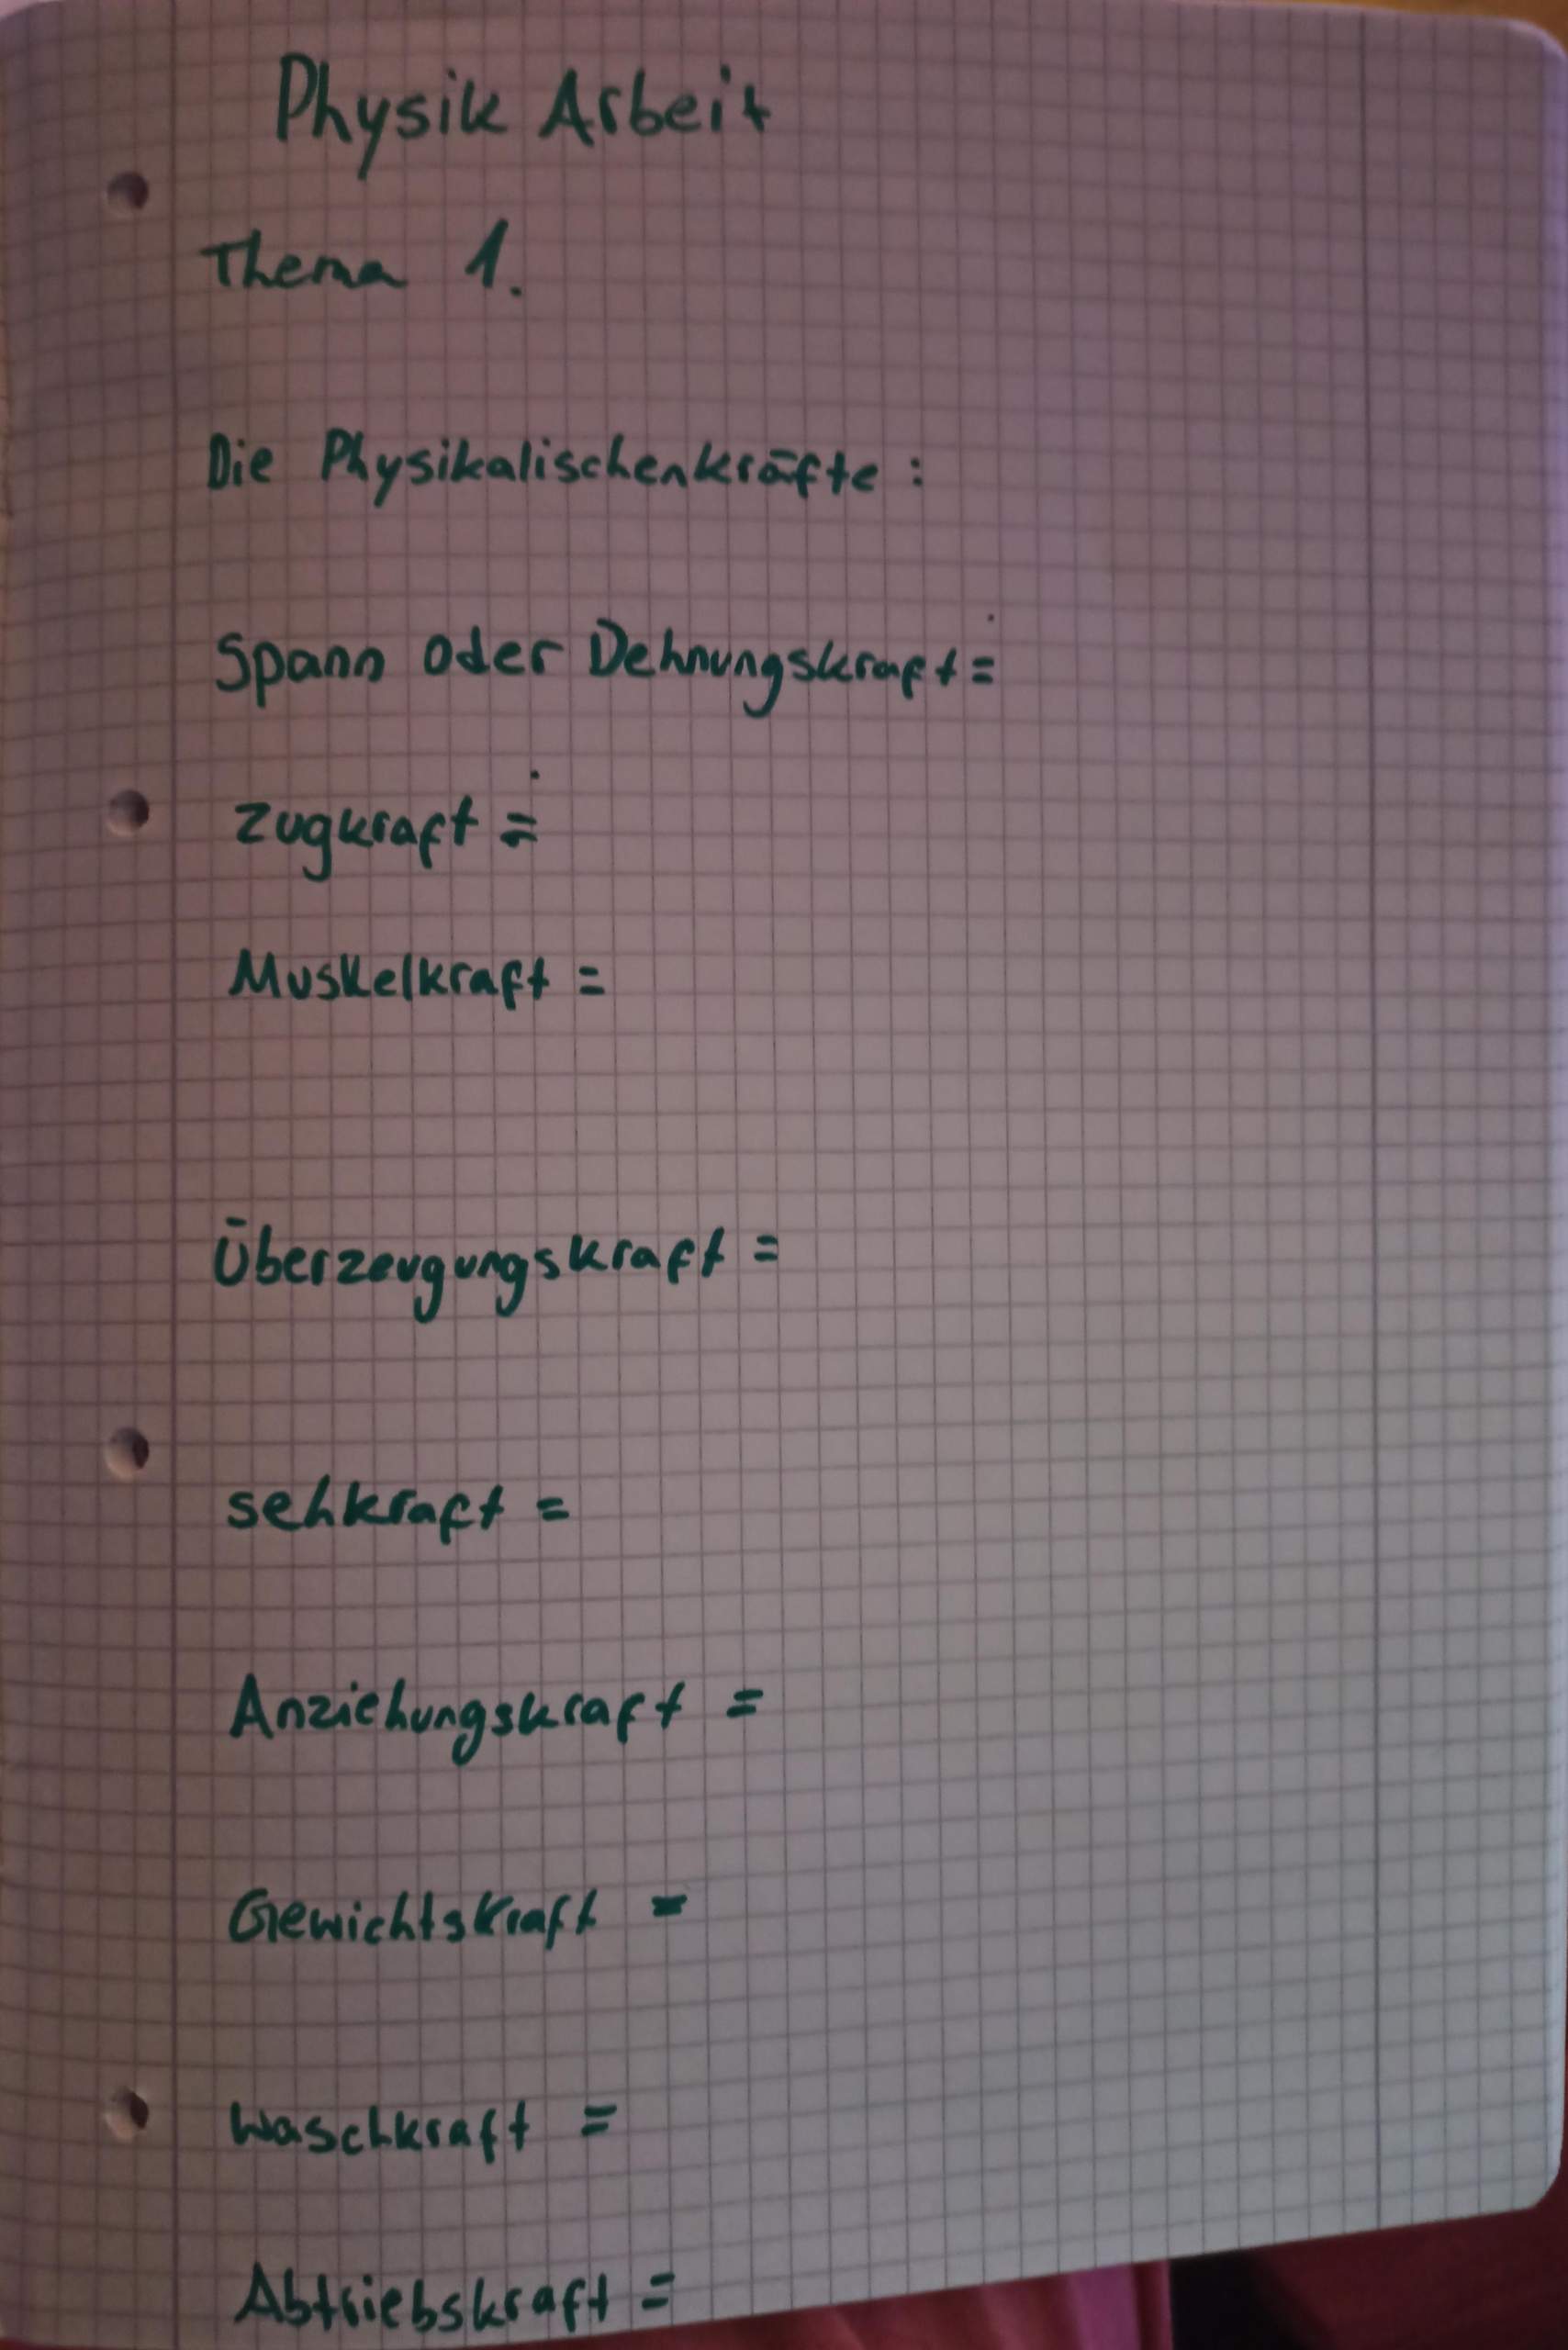 Physik Arbeit
Thema 1.
Die Physikalischenkräfte :
Spann oder Dehnungskraft =
Zugkraft =
Muskelkraft =
Überzeugungskraft =
sehkraft =
Anziehungskraft =
Gewichtskraft =
Waschkraft =
Abtriebskraft =